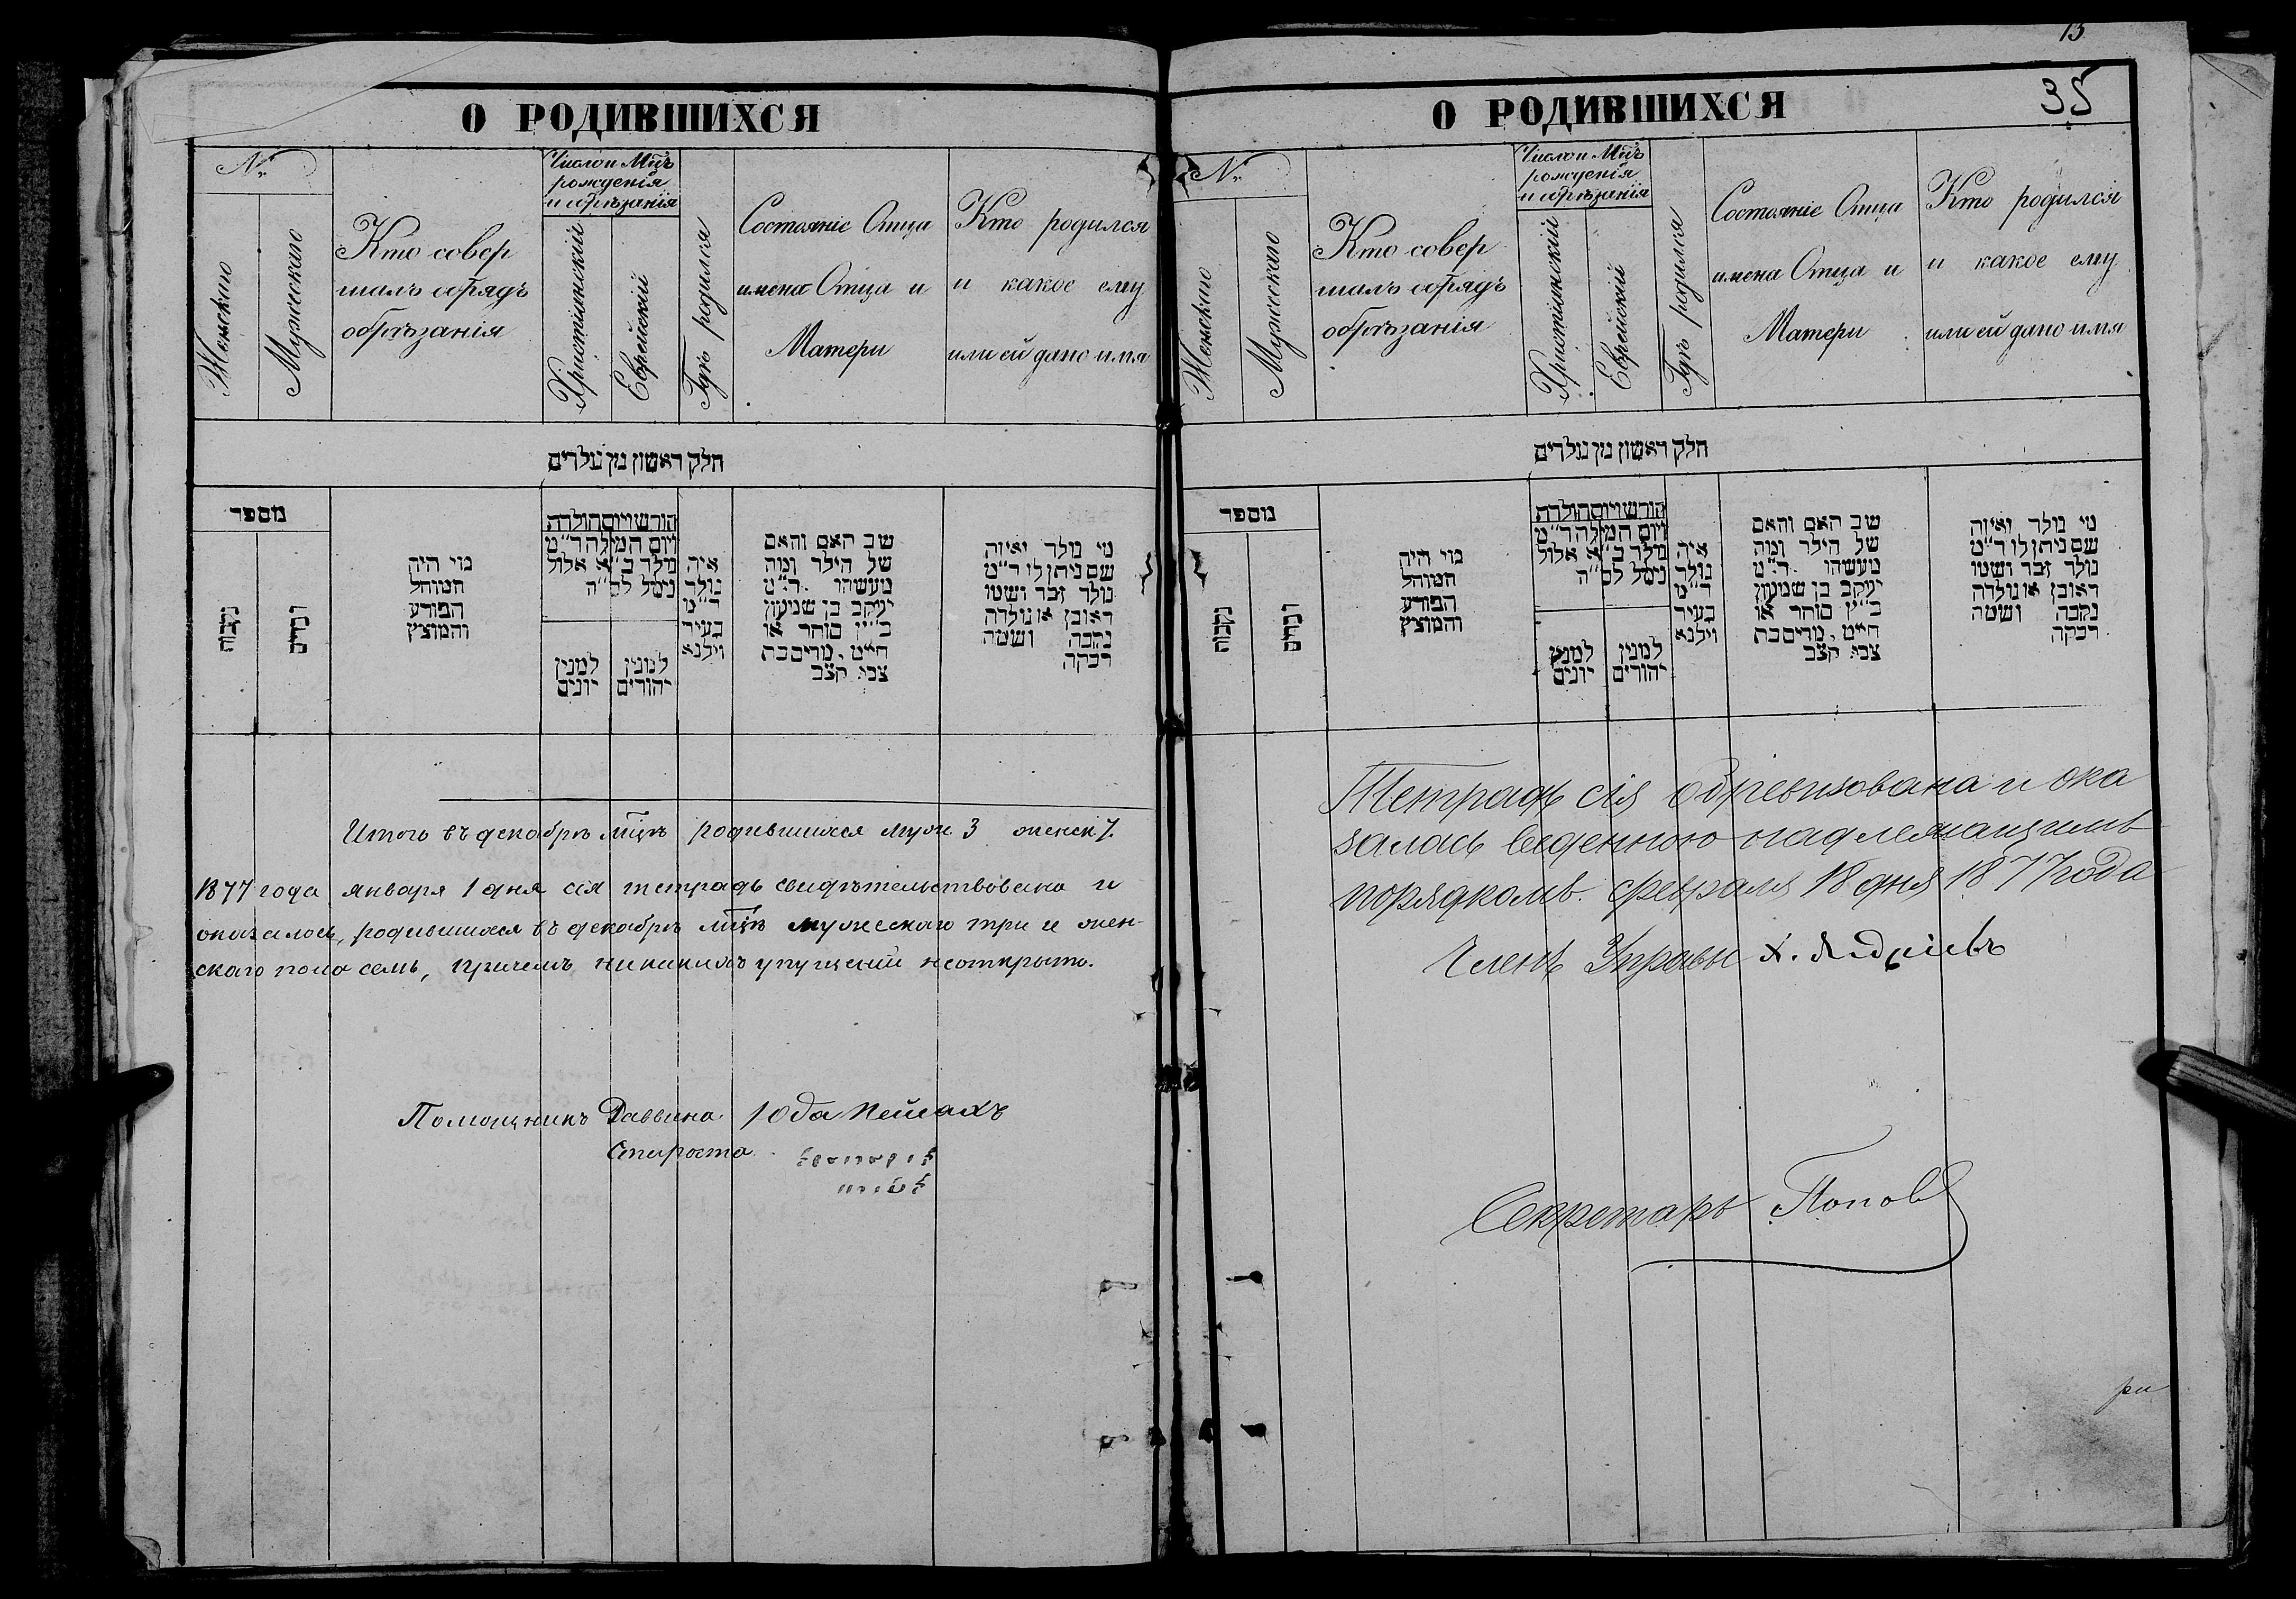 О РОДИВШИХСЯ
№
Женскаго
Мужескаго
Кто совер
шалъ обрядъ
обрѣзанія
Число и Мцъ
рожденія
и обрѣзанія
Христіянскій
Еврейскій
Гдѣ родился
Состояніе Отца
имена Отца и
Матери
Кто родился
и какое ему
или ей дано имя
חלק ראשון מן נולדים
מספר
נקבות
זכרים
מי היה
המוהל
הפורע
והמוצץ
חודש ויום הולדת
ויום המילה ד״מ
נולד כ״א אלול
נימל לס״ה
למנין
יונים
למנין
יהודים
איה
נולד
ד״מ
בעיר
ווילנא
שב האם והאם
של הילד ומה
מעשהו ד״מ
יעקב בן שמעון
כ״ץ סוחר או
חייט, מרים בת
צבי קצב
מי נולד ואיזה
שם ניתן לו ד״מ
נולד זכר ושמו
ראובן או נולדה
נקבה ושמה
רבקה
Итого въ декабрѣ мцѣ родившихся муж 3 женск 7.
1877 года января 1 дня сія тетрадь свидѣтельствована и
оказалось, родившихся въ декабрѣ мцѣ мужескаго три и жен-
скаго пола семь, причемъ никакихъ упущеній не открыто.
Помощникъ Раввина Іода Пейсахъ
Староста
15
35
О РОДИВШИХСЯ
№
Женскаго
Мужескаго
Кто совер
шалъ обрядъ
обрѣзанія
Число и Мцъ
рожденія
и обрѣзанія
Христіянскій
Еврейскій
Гдѣ родился
Состояніе Отца
имена Отца и
Матери
Кто родился
и какое ему
или ей дано имя
חלק ראשון מן נולדים
מספר
נקבות
זכרים
מי היה
המוהל
הפורע
והמוצץ
חודש ויום הולדת
ויום המילה ד״מ
נולד כ״א אלול
נימל לס״ה
למנין
יונים
למנין
יהודים
איה
נולד
ד״מ
בעיר
ווילנא
שב האם והאם
של הילד ומה
מעשהו ד״מ
יעקב בן שמעון
כ״ץ סוחר או
חייט, מרים בת
צבי קצב
מי נולד ואיזה
שם ניתן לו ד״מ
נולד זכר ושמו
ראובן או נולדה
נקבה ושמה
רבקה
Тетрадь сія обревизована и ока
залась веденною надлежащимъ
порядкомъ. февраля 18 дня 1877 года
Членъ Управы Х.
Секретарь Попов